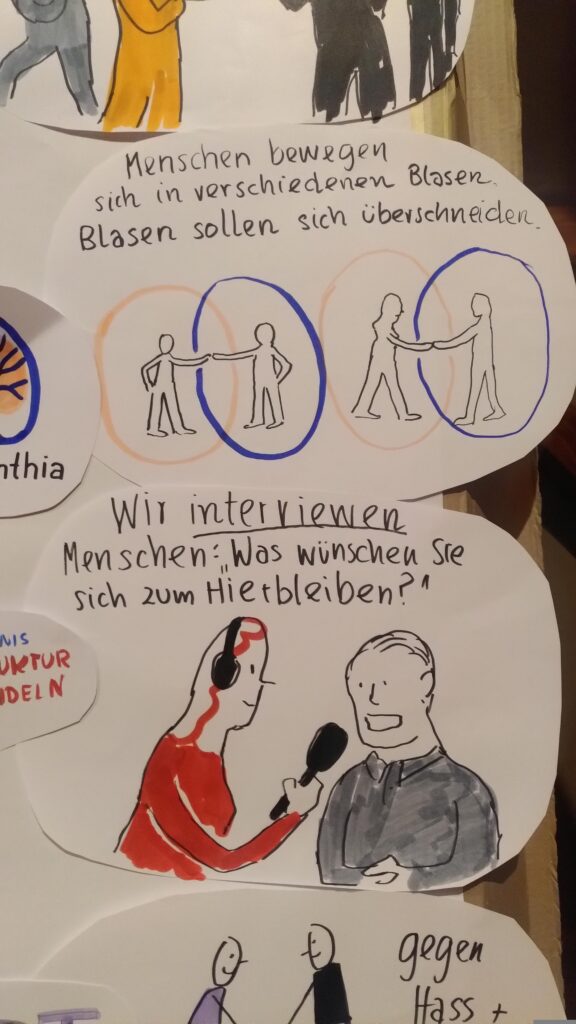 Menschen bewegen
sich in verschiedenen Blasen.
Blasen sollen sich überschneiden.
nthia
Wir interviewen
Menschen: „Was wünschen Sie
sich zum Hierbleiben?"
NIS
UKTUR
DELN
gegen
Hass +